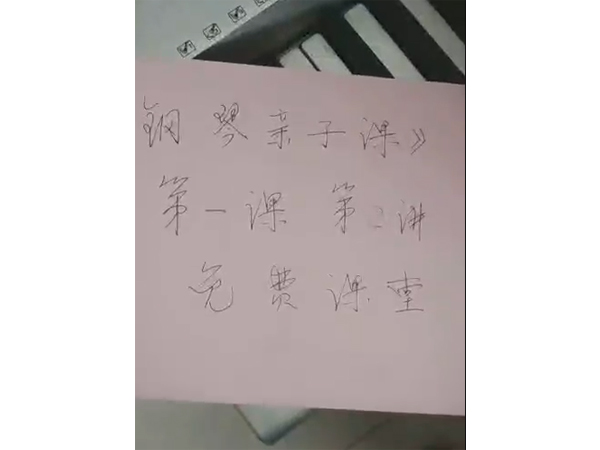 钢琴亲子课》
第一课 第2讲
免费课堂